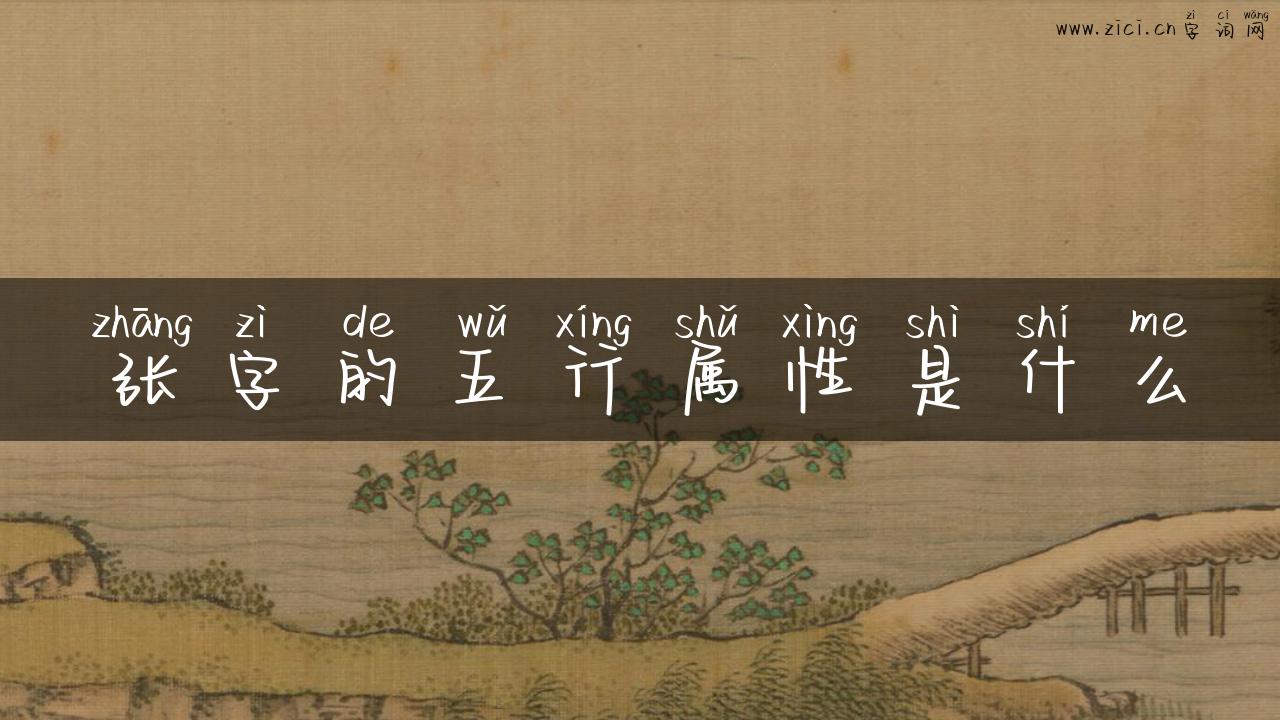 zì cí wǎng
www.zici.cn 字词网
zhāng zì de wǔ xíng shǔ xìng shì shí me
张字的五行属性是什么